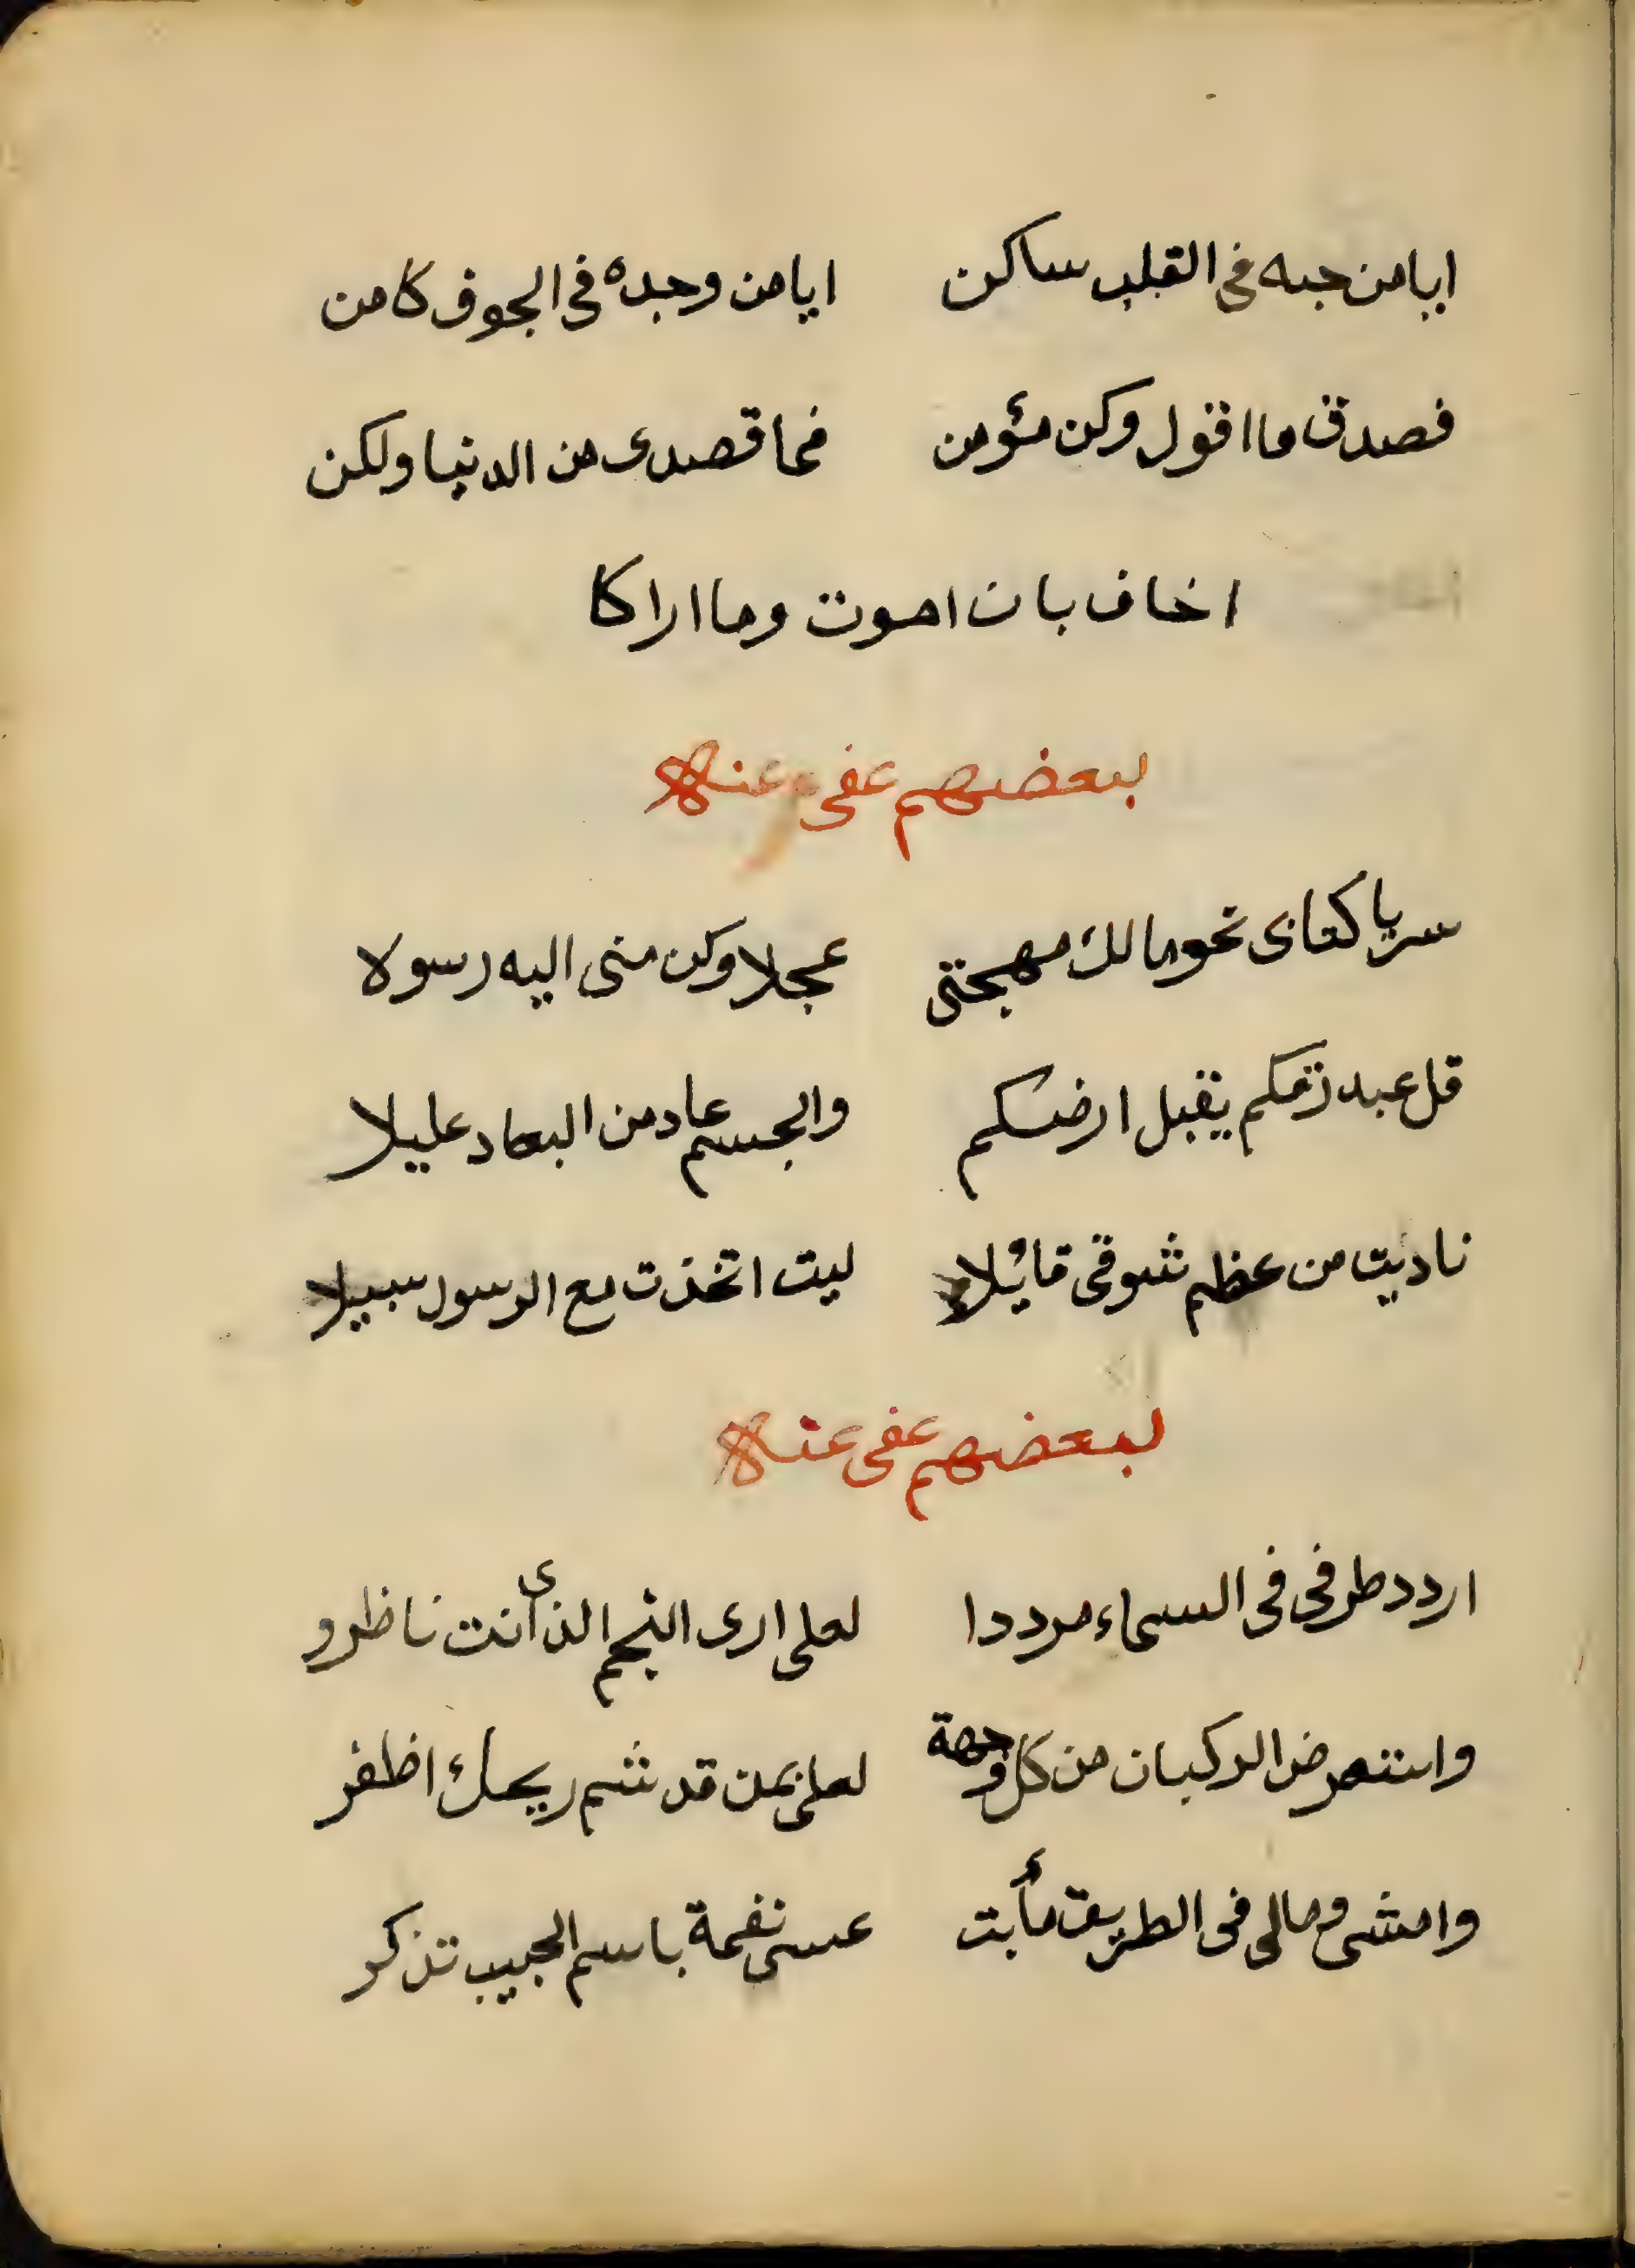 ايامن حبه فى القلب ساكن ايامن وجده فى الجوف كامن
فصدق ما اقول وكن مئومن فما قصدى من الدنيا ولكن
اخاف بان اموت وما اراكا
لبعضهم عفى عنه
سر يا كتابى نحو مالك مهجتى عجلا وكن منى اليه رسولا
قل عبد رقكم يقبل ارضكم والجسم عاد من البعاد عليلا
ناديت من عظم شوقى قائلا ليت اتخذت مع الرسول سبيلا
لبعضهم عفى عنه
اردد طرفى فى السماء مرددا لعلى ارى النجم الذى أنت ناظرو
واستعرض الركبان من كل وجهة لعلى بمن قد شم ريحك اظفر
وامشى ومالى فى الطريق مأبت عسى نغمة باسم الحبيب تذكر